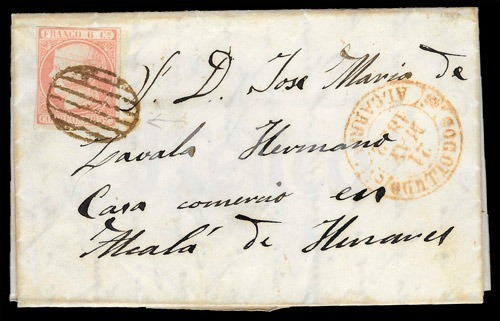 FRANCO 6 Cs
S. D. Jose Maria de
Zavala Hermano
Casa comercio en
Alcalá de Henares
COGOLLUDO